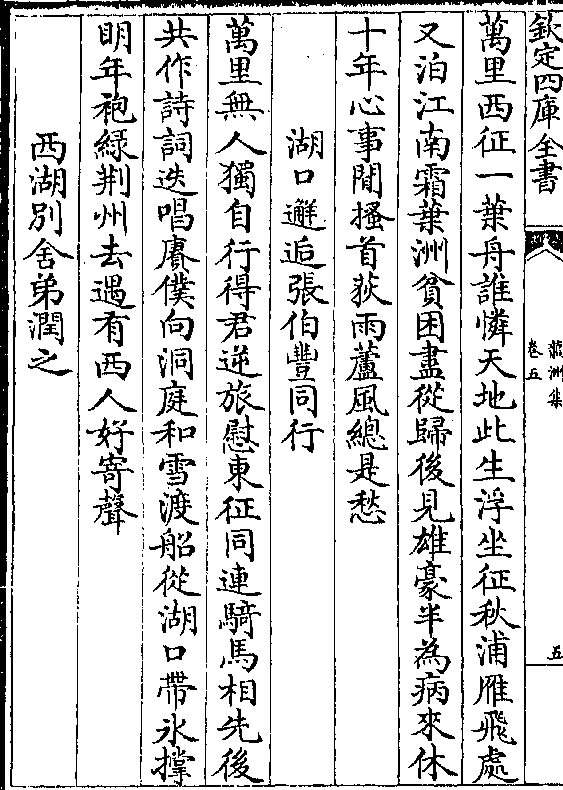 欽定四庫全書
龍洲集
卷五
五
萬里西征一葉舟誰憐天地此生浮坐征秋浦雁飛處
又泊江南霜葉洲貧困盡從歸後見雄豪半為病來休
十年心事閒搔首荻雨蘆風總是愁
湖口邂逅張伯豐同行
萬里無人獨自行得君逆旅慰東征同連騎馬相先後
共作詩詞迭唱賡僕向洞庭和雪渡船從湖口帶氷撑
明年袍綠荆州去遇有西人好寄聲
西湖別舍弟潤之